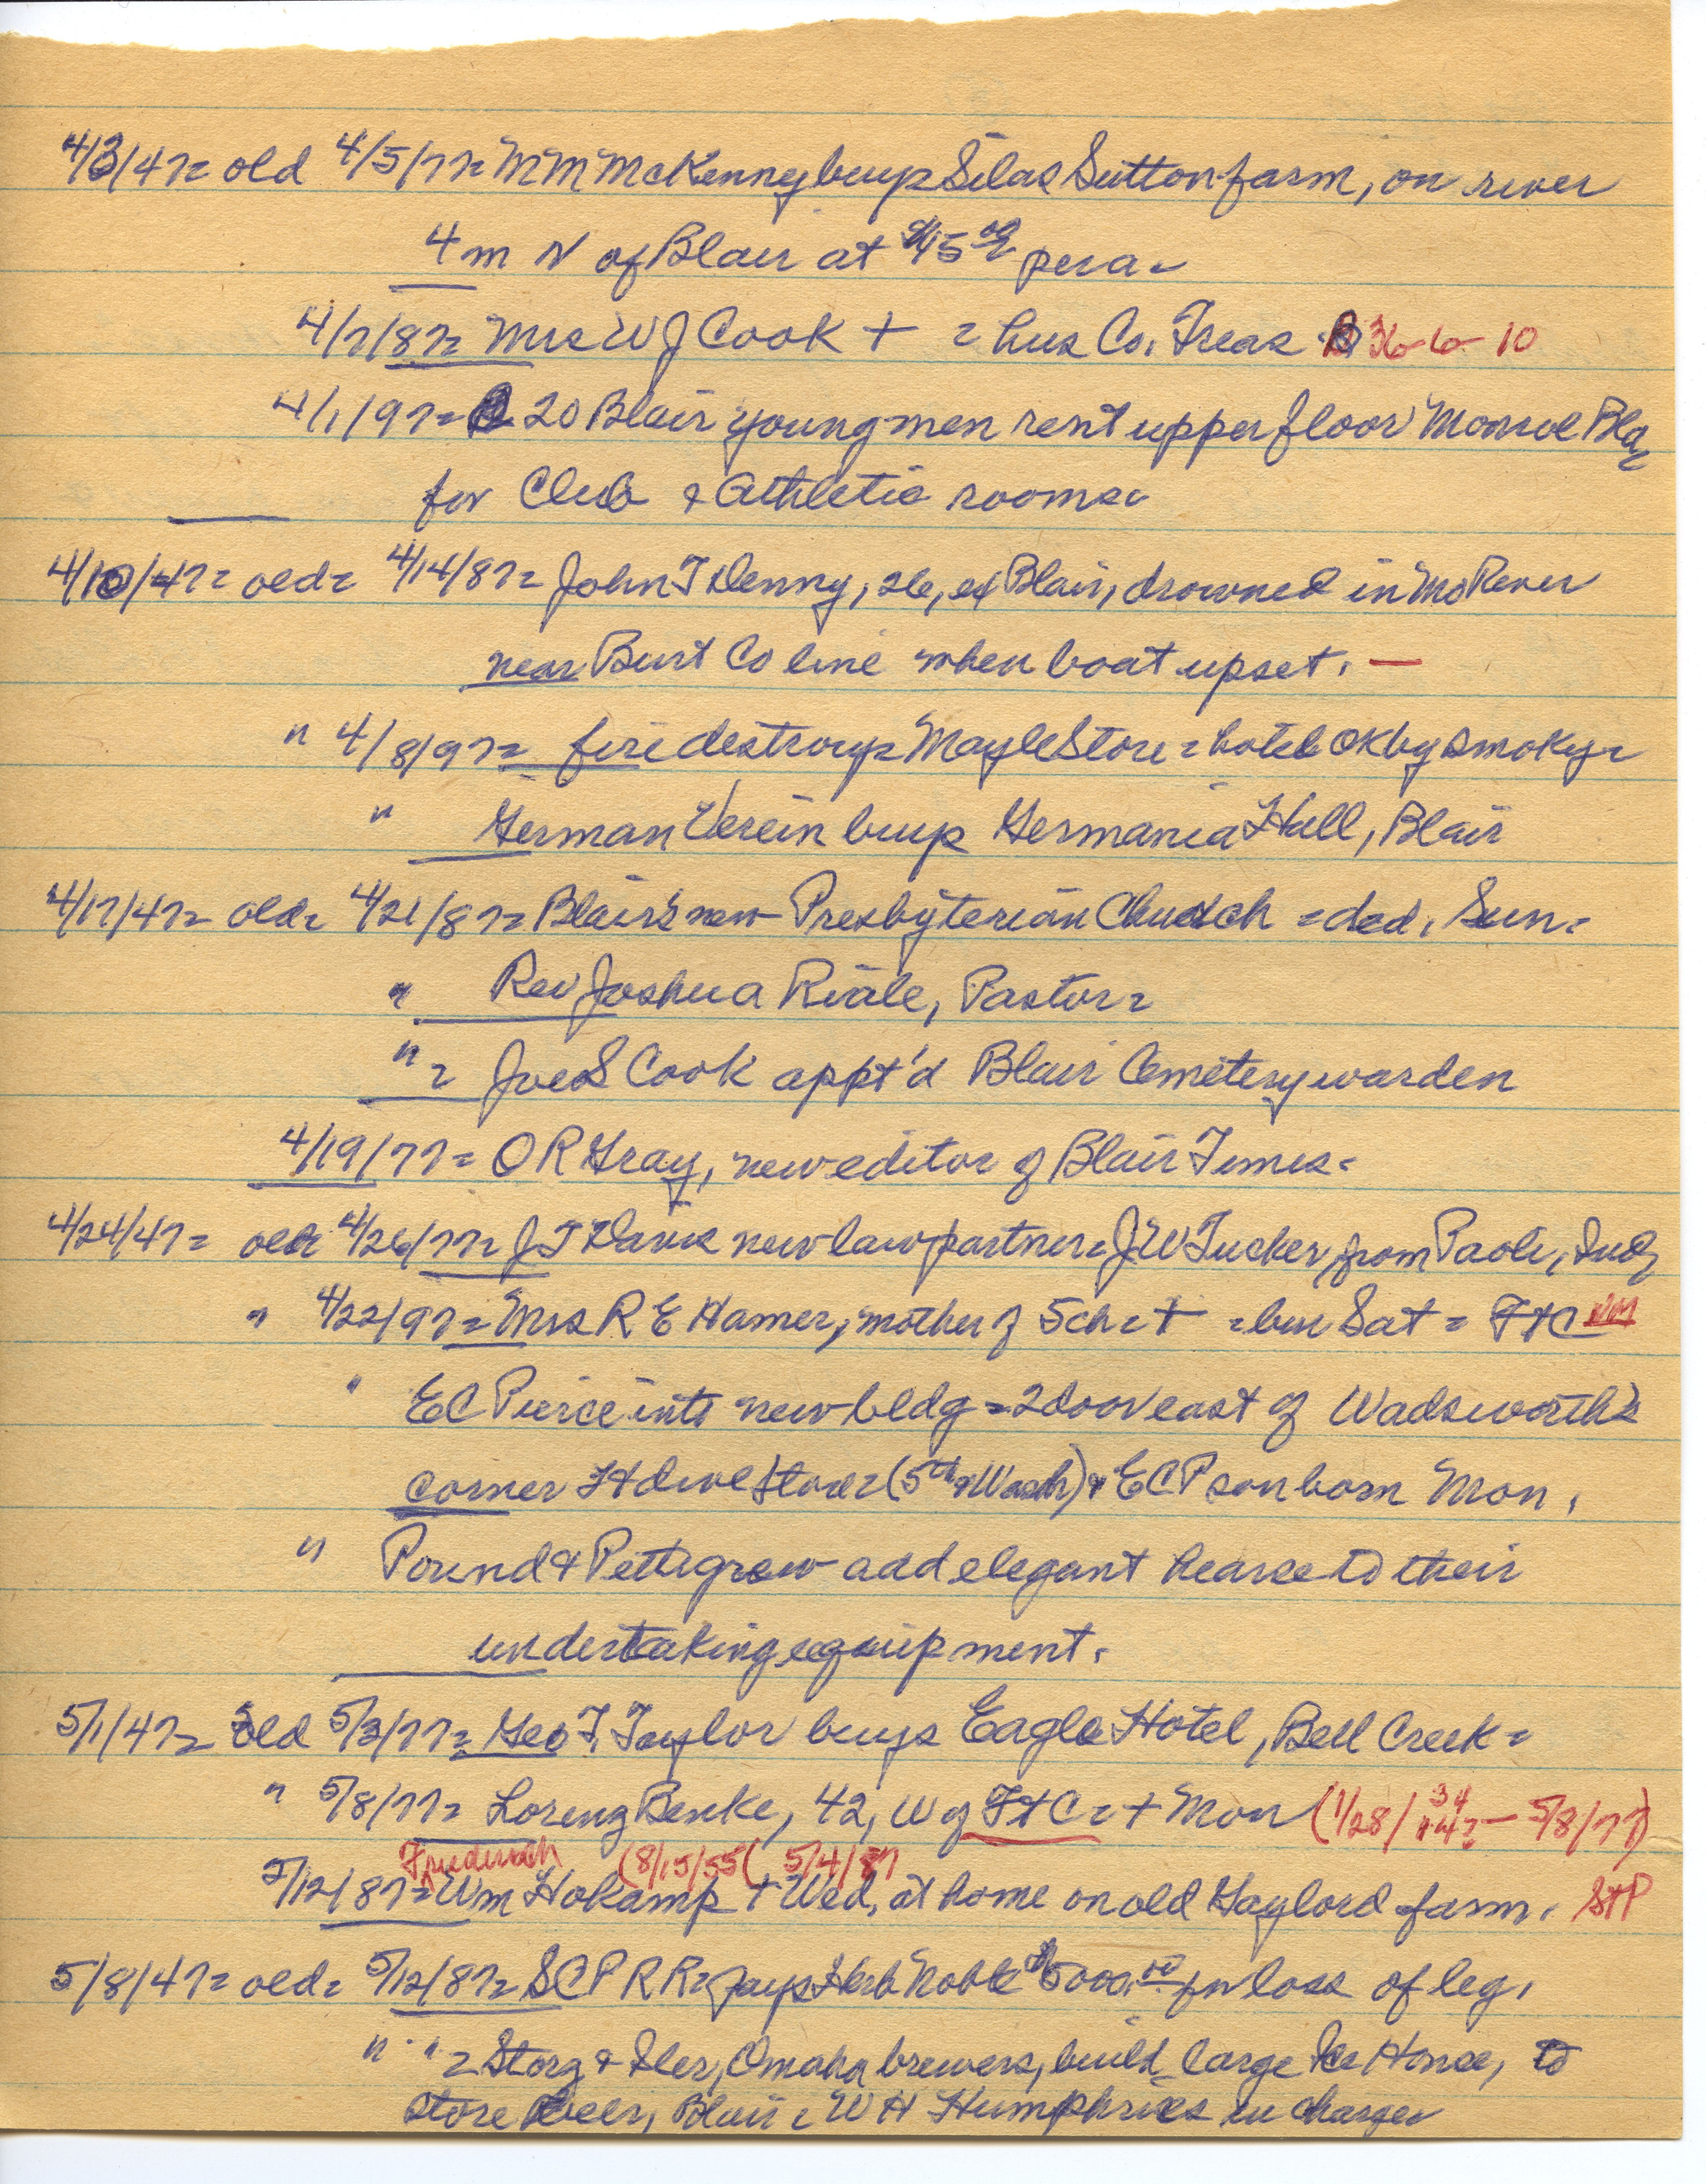 4/3/47= old 4/5/77= M M McKenney buys Silas Sutton farm, on river
4 m N of Blair at $45 00 per a=
4/7/87= Mrs W J Cook + = hus Co. Treas. 36-6-10
4/1/97= 20 Blair young men rent upper floor
for Club & Athletic rooms=
4/10/47= old= 4/14/87= John T Denny, 26, of Blair, drowned in Mo River
near Burt Co line when boat upset. —
" 4/8/97= fire destroys Mayle Store = hotel OK by smoky=
" German Verein buys Germania Hall, Blair
4/17/47= old= 4/21/87= Blair's new Presbyterian Church = ded. Sun=
" Rev Joshua Riale, Pastor=
" = Joe S Cook appt'd Blair Cemetery warden
4/19/77= O R Gray, new editor of Blair Times=
4/24/47= old= 4/26/77= J T Davis new law partner= J W Tucker, from Paoli, Ind=
" 4/22/97= Mrs R E Hamer, mother of 5 ch = + = bur Sat = Ft C
" E C Pierce into new bldg = 2 door east of Wadsworth's
corner Hdwe Store= (5th & Wash) & E C P son born Mon.
" Pound & Pettegrew add elegant hearse to their
undertaking equipment.
5/1/47= old 5/3/77= Geo T. Taylor buys Eagle Hotel, Bell Creek=
" 5/8/77= Lorenz Benke, 42, W of Ft C= + Mon (1/28/34 — 5/8/77)
Friedrich (8/15/55( 5/4/87
5/12/87= Wm Hokamp + Wed, at home on old Gaylord farm. StP
5/8/47= old= 5/12/87= S C P R R= pays Herb Noble $5000.00 for loss of leg.
" " = Storz & Iler, Omaha brewers, build large Ice House, to
store beer, Blair = W H Humphries in charge=